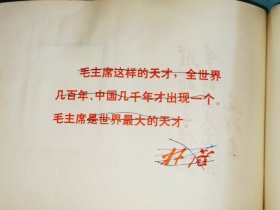 毛主席这样的天才，全世界
几百年、中国几千年才出现一个。
毛主席是世界最大的天才。
林彪